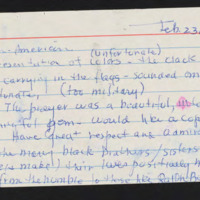 Feb 23,
-American (unfortunate)
presentation of colors - the clack
carrying in the flags - sounded om
(too military)
The prayer was a beautiful,
poem. would like a copy
Have great respect and admir
the many black brothers/sisters
(here make) their lives positively h
from the humble to those like